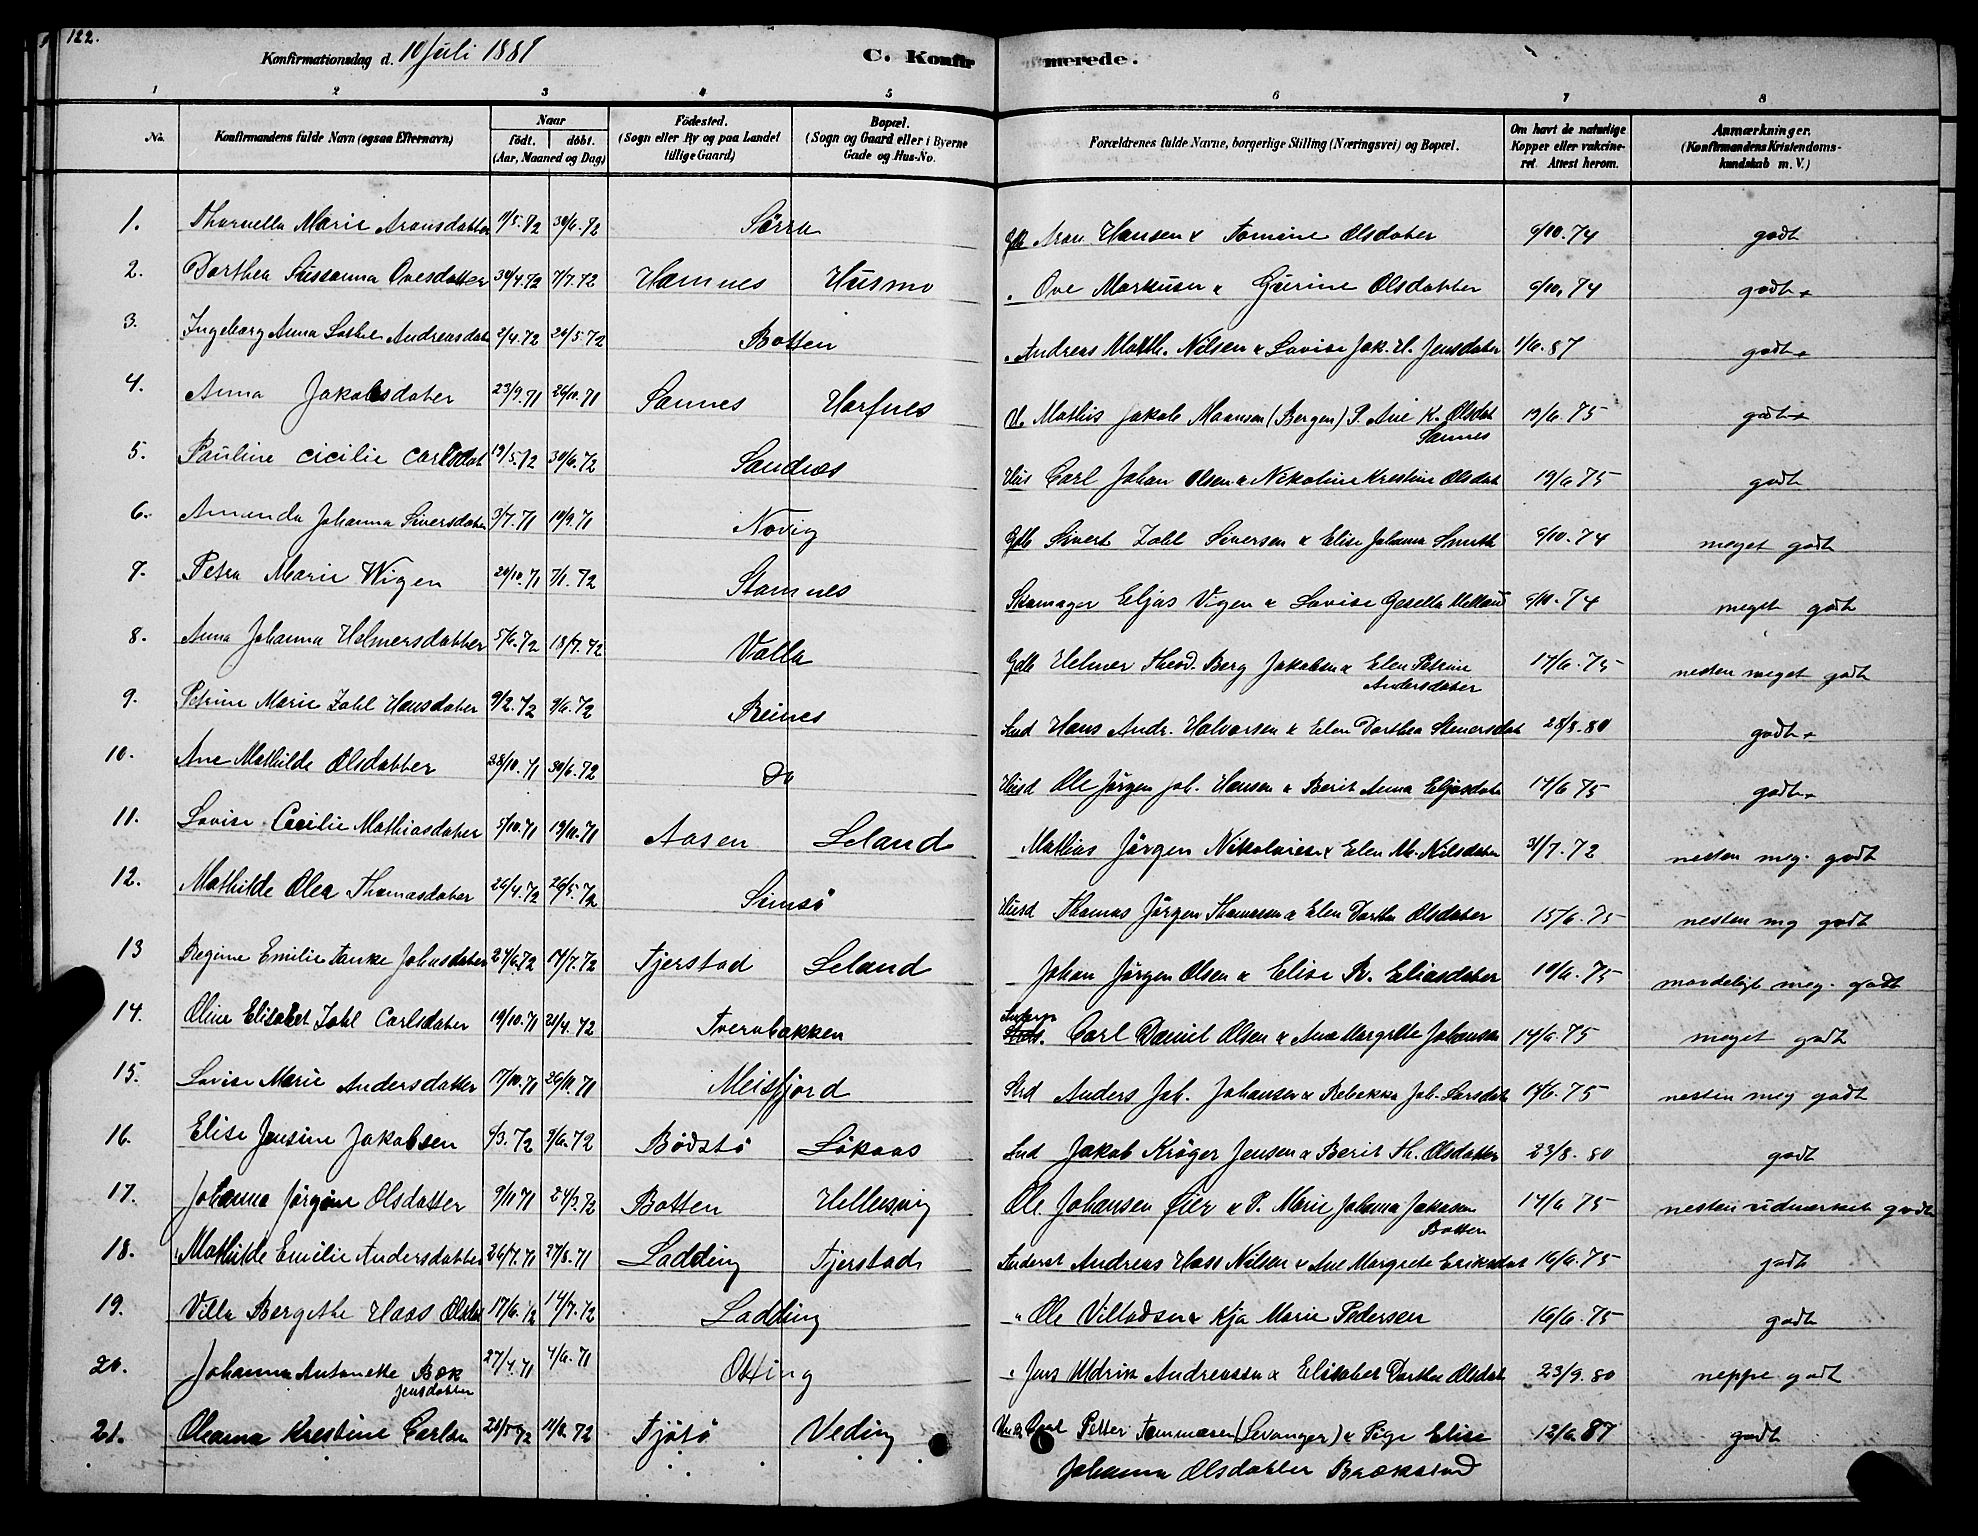 122.
Konfirmationsdag d. 10 Juli 1887
C. Konfirmerede.
1 2 3 4 5 6 7 8
No. Konfirmandens fulde Navn (ogsaa Efternavn) Naar født. døbt. (Aar, Maaned og Dag) Fødested. (Sogn eller By og paa Landet tillige Gaard) Bopæl. (Sogn og Gaard eller i Byerne Gade og Hus-No. Forældrenes fulde Navne, borgerlige Stilling (Næringsvei) og Bopæl. Om havt de naturlige Kopper eller vakcineret. Attest herom. Anmærkninger. (Konfirmandens Kristendomskundskab m. V.)
1. Marie Aronsdatter 30/6.72 Aron Hansen & Tomine Olsdater 6/10.74 godt
2. Dorthea Sussanna Ovesdatter 30/4.72 7/7.72 Hamnes Husmo Ove Markusen & Gurine Olsdatter 6/10.74 godt
3. Ingeborg Anna Andreasdat 2/4.72 26/5.72 Botten Andreas Matth. Nilsen & Lovise Jak. H. Jensdater 1/6.87 godt
4. Anna Jakobsdater 23/9.71 26/10.71 Sannes Mathis Jakob (Bergen) P. Ane K. Olsdat Sannes 19/6.75 godt
5. Pauline Cicilie Carlsdat 19/5.72 30/6.72 Sandnes Hus Carl Johan Olsen & Nikoline Krestine Olsdat 19/6 75 godt
6. Amanda Johanna Siversdater 3/7.71 10/9.71 Novig Gdb Sivert Zahl Siversen & Elise Johanna Smith 6/10.74 meget godt
7. Petra Marie Wigen 20/10.71 7/1.72 Stamnes Skomager Eljas Vigen & Lovise 6/10.74 meget godt
8. Anna Johanna Helmersdatter 5/6.72 18/7.72 Valla Gdb Helmer Theod. Berg Jakobsen & Elen Petrine Andersdater 17/6.75 nesten meget godt
9. Petrine Marie Zahl Hansdater 9/2.72 9/6.72 Reines Ind Hans Andr. Halvorsen & Elen Dorthea Stenersdat 28/8.80 godt
10. Ane Mathilde Olsdatter 28/10.71 30/6.72 Do Husd Ole Jørgen Joh. Hansen & Berit Anna Eljasdat 17/6 75 godt
11. Lovise Cecilie Mathiasdater 5/10.71 19/11.71 Aasen Leland Mathias Jørgen Nikolaisen & Elen M. Nilsdater 31/7.72 nesten meg. godt
12. Mathilde Olea Thomasdater 26/4.72 26/5.72 Simsø Husd Thomas Jørgen Thomasen & Elen Dorthea Olsdater 15/6.75 nesten mg godt
13 Regine Emilie Tanke Johnsdater 24/6.72 14/7.72 Fjerstad Leland Johan Jørgen Olsen & Elise R. Eliasdater 10/6.75 maadeligt meg. godt
14. Oline Elisabet Zahl Carlsdater 19/10.71 21/4.72 Tverubakken Carl Daniel Olsen & Ane Margrete Johansen 14/6.75 meget godt
15. Lovise Marie Andersdatter 17/10.71 26/11.71 Meisfjord Anders Joh. Johansen & Rebekka Joh. Larsdat 14/6.75 nesten meg godt
16. Elise Jensine Jakobsen 6/3.72 9/6.72 Bødstø Løkaas Ind Jakob Krøger Jensen & Berit Th. Olsdatter 23/8.80 godt
17. Johanna Jørgine Olsdatter 9/11 71 24/3.72 Botten Hellesvig Ole Johansen Øier & P. Marie Johanna Jakobsen Botten 17/6 75 nesten udmærket godt
18. Mathilde Emilie Andersdatter 26/7.71 27/8.71 Ladding Fjerstad Andreas Hass Nilsen & Ane Margrete Eriksdat 16/6.75 godt
19. Villa Bergitte Haas 17/6.72 14/7.72 Ladding " Ole Villadsen & Kja Marie Pedersen 16/6.75 godt
20. Johanna Antonette Bæk Jensdatter 27/4.71 4/6.71 Otting " Jens Uldrik Andreassen & Elisabet Dorthea Olsdat 23/9.80 neppe godt
21. Oleana Krestine Carlsen 11/8.72 Tjøtø Veding Petter (Levanger) & Pige Elise Johanna Olsdatter 12/6.87 godt